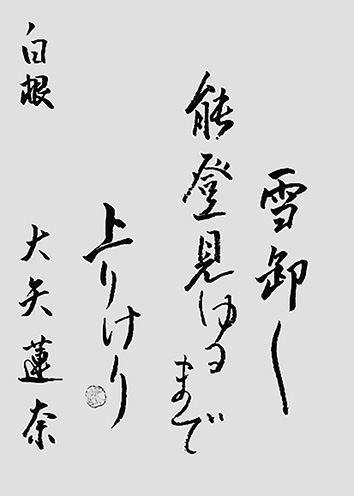 雪卸し
能登見ゆるまで
上りけり
白根
大矢蓮奈